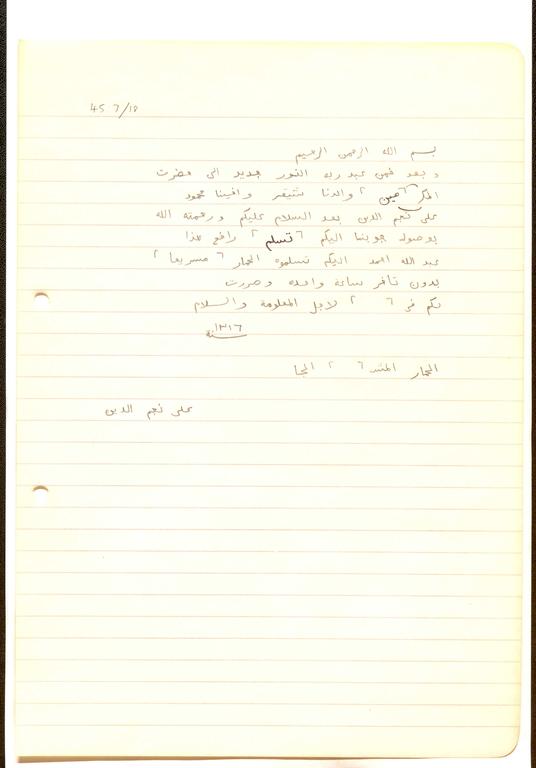 45 7/18
بسم الله الرحمن الرحيم
و بعد فمن عبد ربه النور جديد الى حضرت
المكرمين ٢ والدنا شتيقر واخينا محمود
على نجم الدين بعد السلام عليكم ورحمته الله
بوصول جوبنا اليكم ٦ تسلم ٢ رافع هذا
عبد الله احمد اليكم تسلموه الحمار ٦ مسريعا ٢
بدون تافر ساعة واحده وصررت
لكم فى ٦ ٢ لاجل المعلومة والسلام
سنة ١٣١٦
الحمار ٦ ٢
على نجم الدين